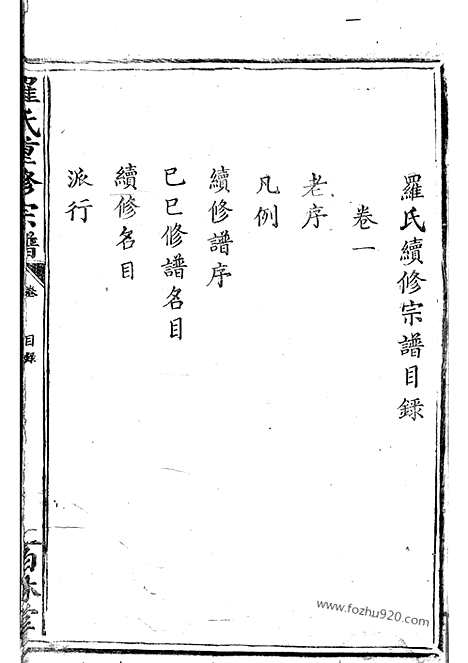 羅氏續修宗譜目錄
卷一
老序
凡例
續修譜序
已巳修譜名目
續修名目
派行
羅氏重修宗譜
卷
目錄
www.fozhu920.com